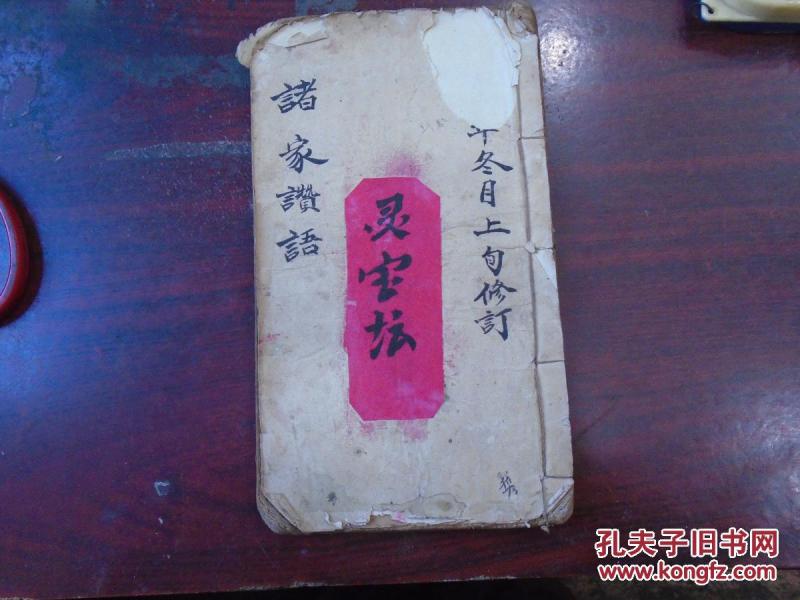 年冬月上旬修訂
灵宝坛
諸家讚語
孔夫子旧书网
www.kongfz.com